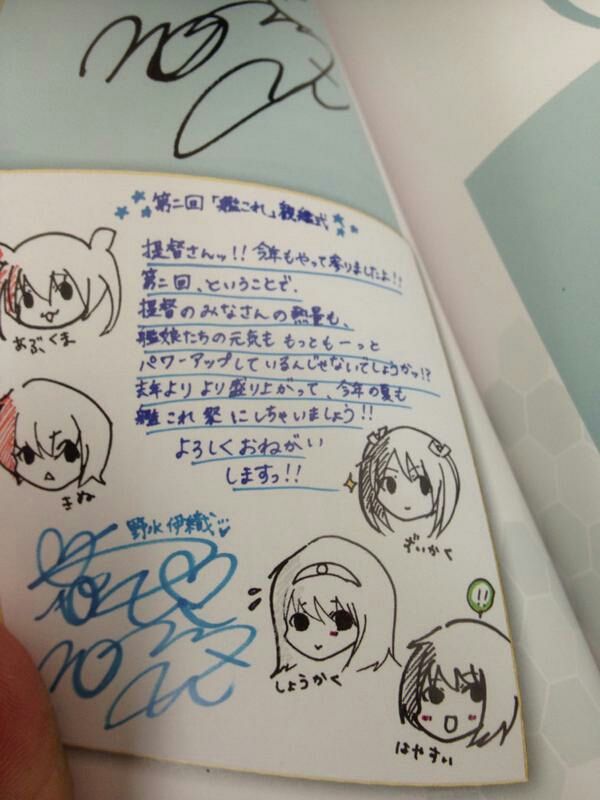 第二回「艦これ」観艦式
提督さんッ!! 今年もやって参りましたよ!!
第二回、ということで、
提督のみなさんの熱量も、
艦娘たちの元気も もっともーっと
パワーアップしているんじゃないでしょうかッ!?
去年より より盛り上がって、今年の夏も
艦これ祭にしちゃいましょう!!
よろしくおねがい
しますっ!!
あぶくま
きぬ
ずいかく
野水伊織
しょうかく
!!
はやすい